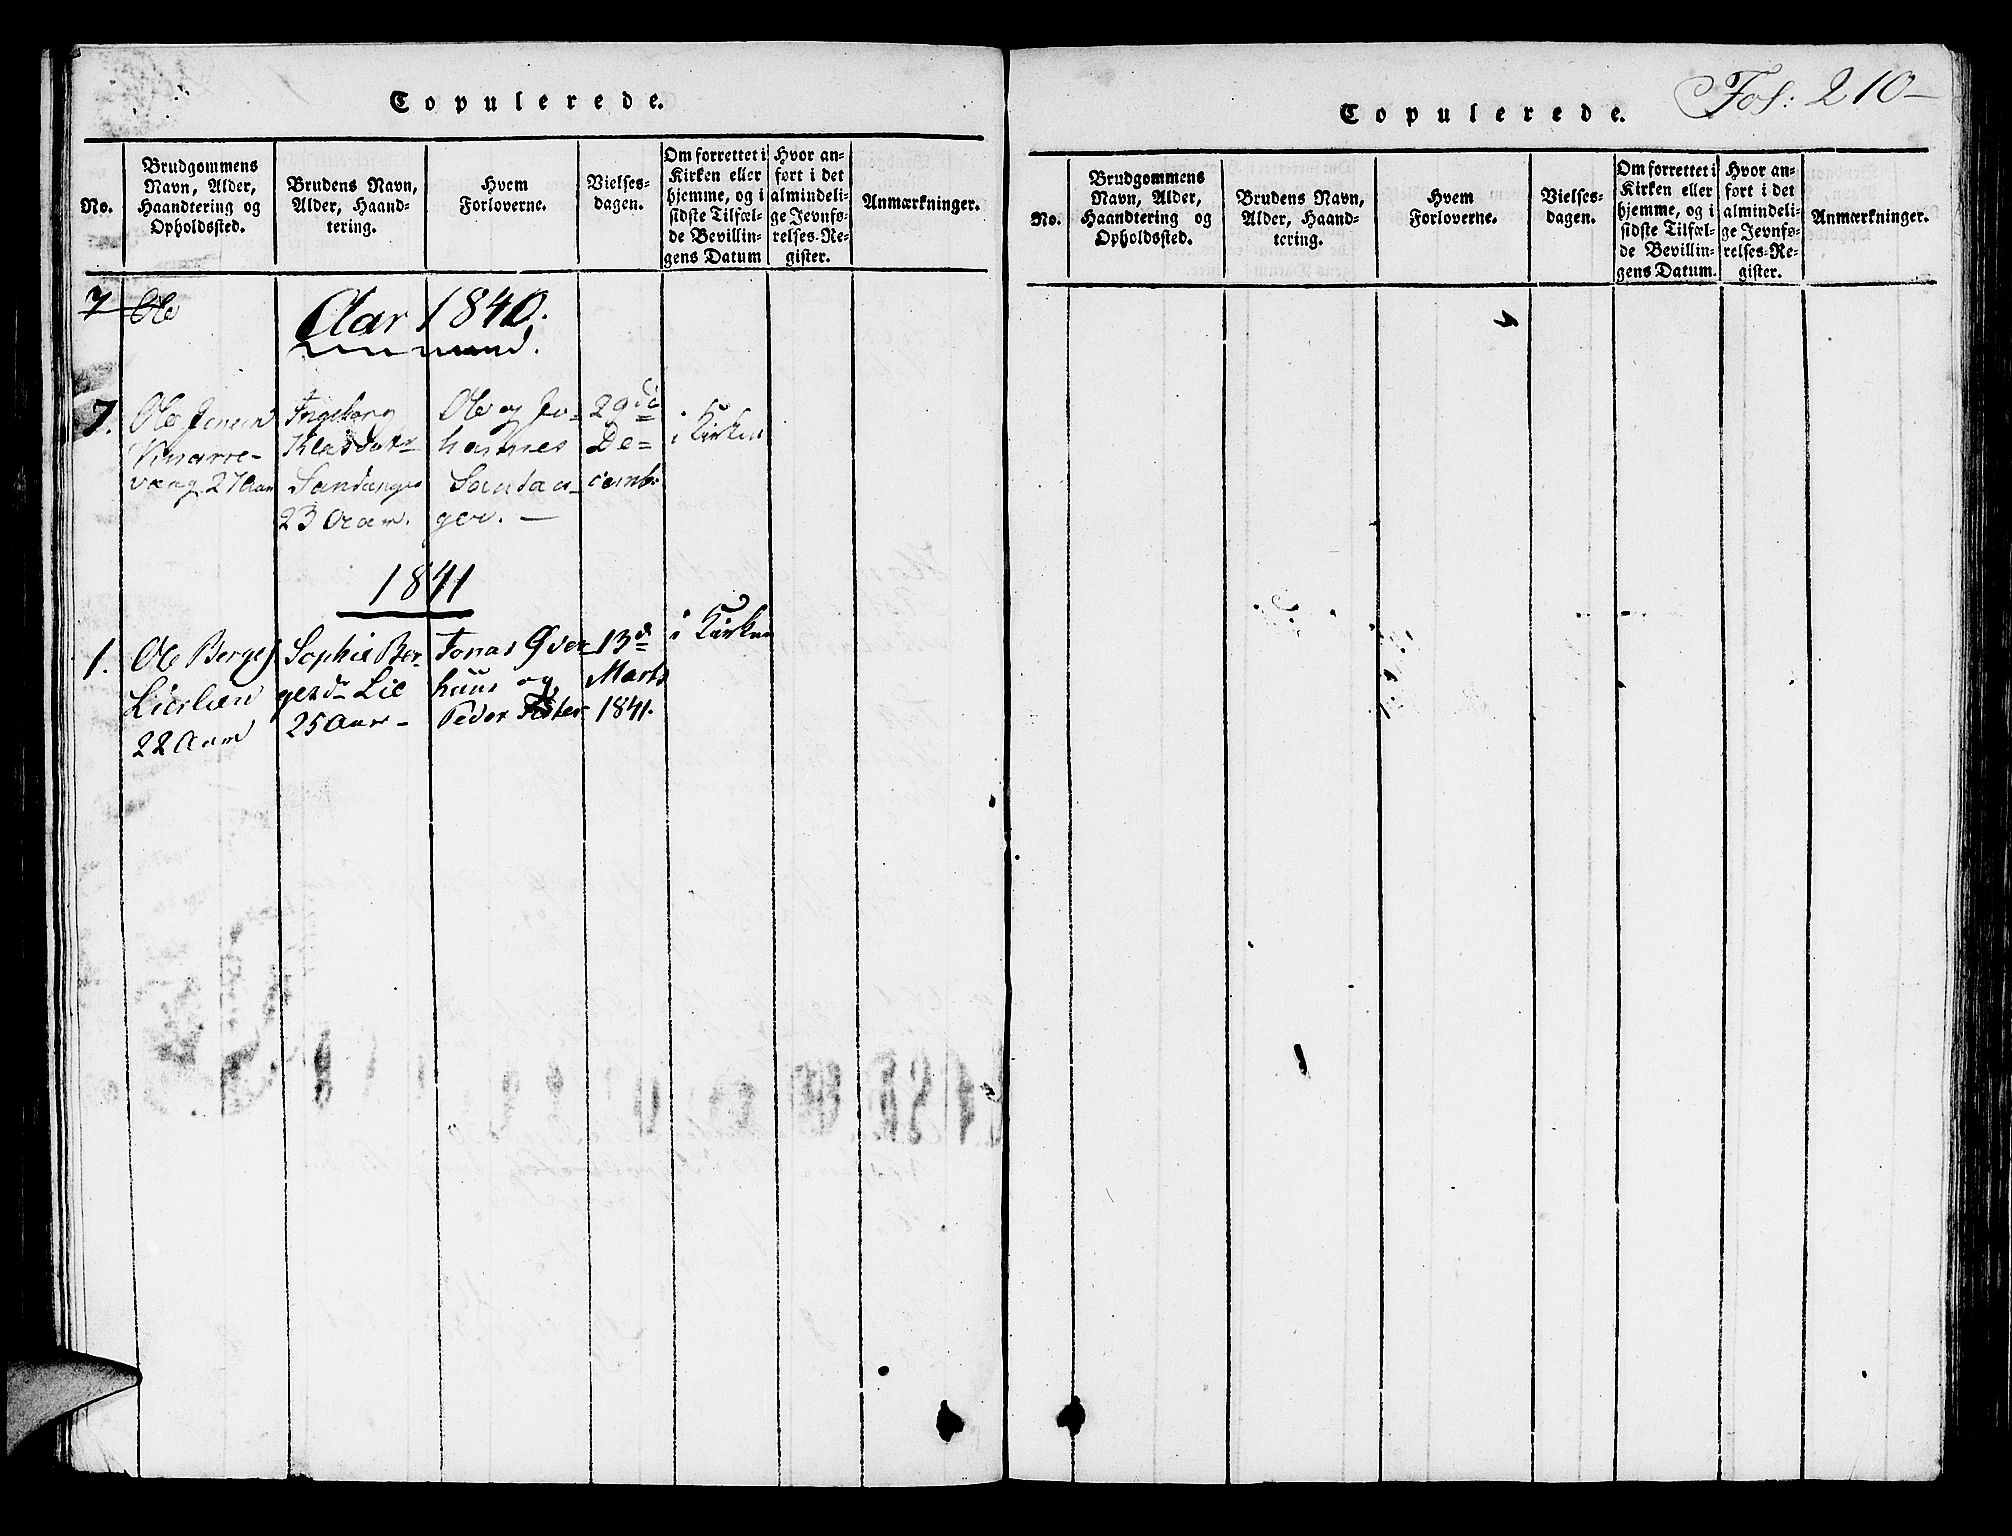 Copulerede.
No.
Brudgommens
Navn, Alder,
Haandtering og
Opholdssted.
Brudens Navn,
Alder, Haand-
tering.
Hvem
Forloverne.
Vielses-
dagen.
Om forrettet i
Kirken eller
hjemme, og i
sidste Tilfæl-
de Bevillin-
gens Datum
Hvor an-
ført i det
almindeli-
ge Jevnfø-
relses-Re-
gister.
Anmærkninger.
7 Ole
Aar 1840.
7.
Ole Jensen
vang 27 Aar
Ingeborg
Klasdatr
Sandanger
23 Aar.
Ole og Jo-
hannes
Sandan-
ger. —
29de
De=
cemb.
i Kirken
1841
1.
Ole Berges
Lierlien
22 Aar
Sophie Ber-
gesdr Lie
25 Aar -
Jonas Øver-
huus og
Peder
13de
Marts
1841.
i Kirken
Fol: 210-
Copulerede.
No.
Brudgommens
Navn, Alder,
Haandtering og
Opholdssted.
Brudens Navn,
Alder, Haand-
tering.
Hvem
Forloverne.
Vielses-
dagen.
Om forrettet i
Kirken eller
hjemme, og i
sidste Tilfæl-
de Bevillin-
gens Datum.
Hvor an-
ført i det
almindeli-
ge Jevnfø-
relses-Re-
gister.
Anmærkninger.